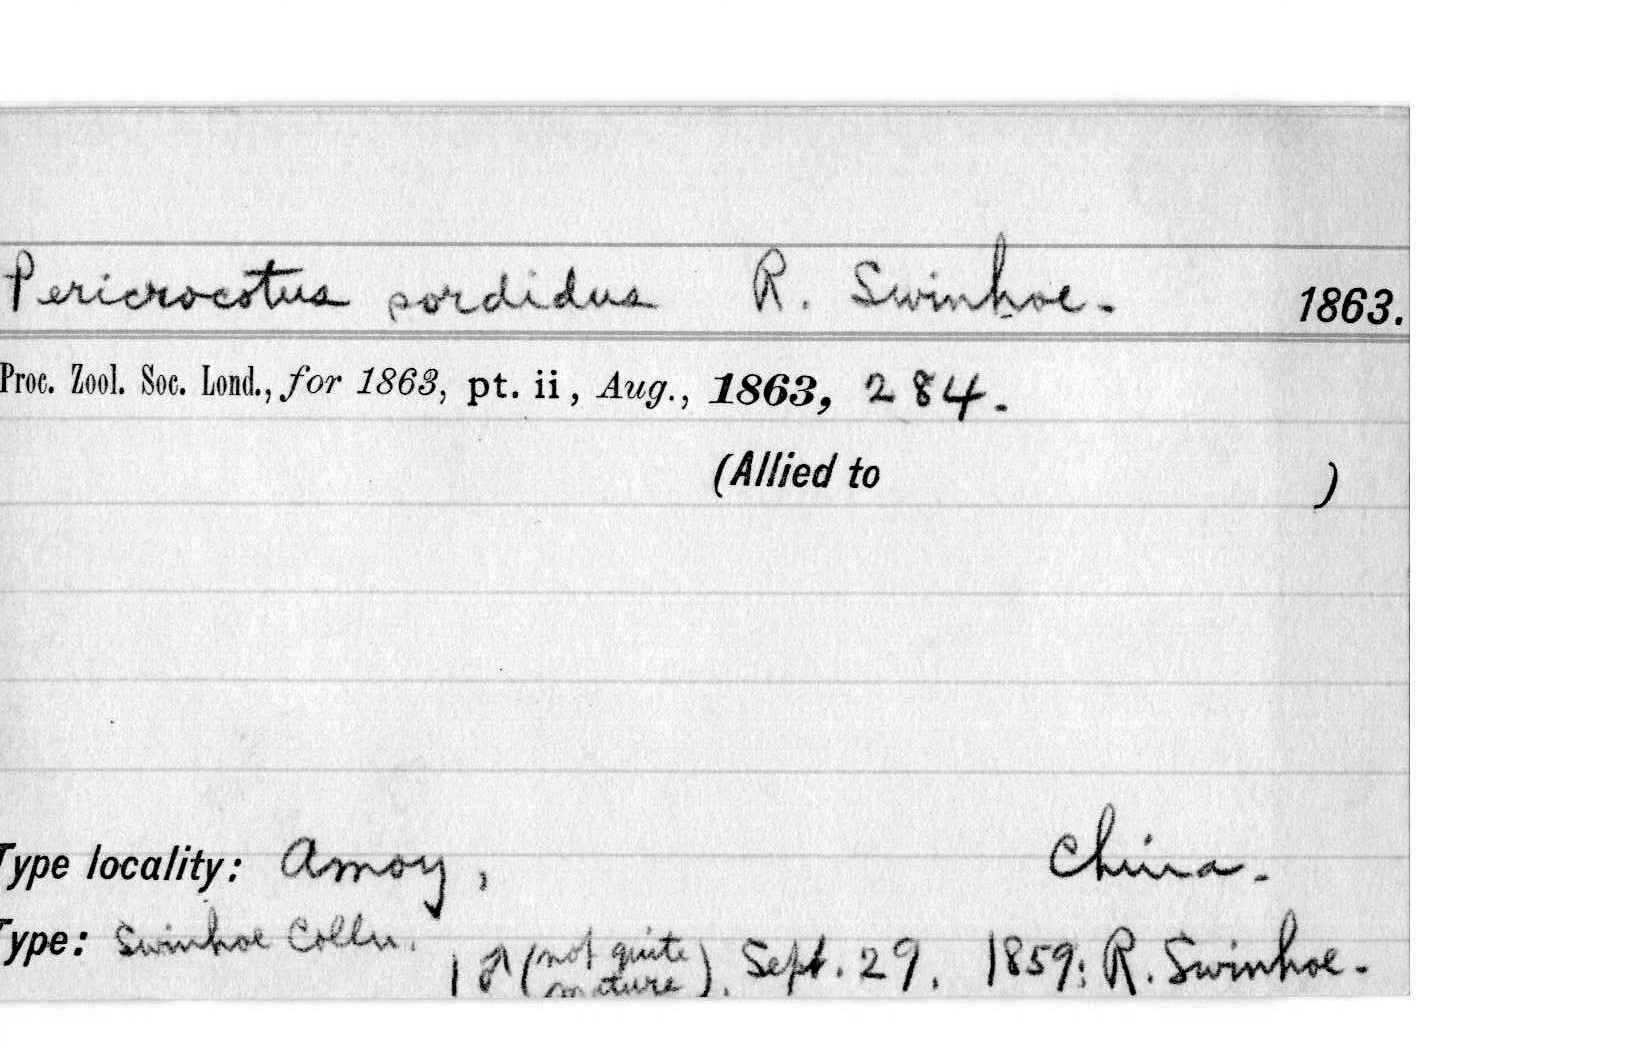 Pericrocotus sordidus R. Swinhoe. 1863.
Proc. Zool. Soc. Lond., for 1863, pt. ii, Aug., 1863, 284.
(Allied to )
Type locality: Amoy, China.
Type: Swinhoe Colln. 1 ♂ (not quite mature). Sept. 29. 1859: R. Swinhoe.